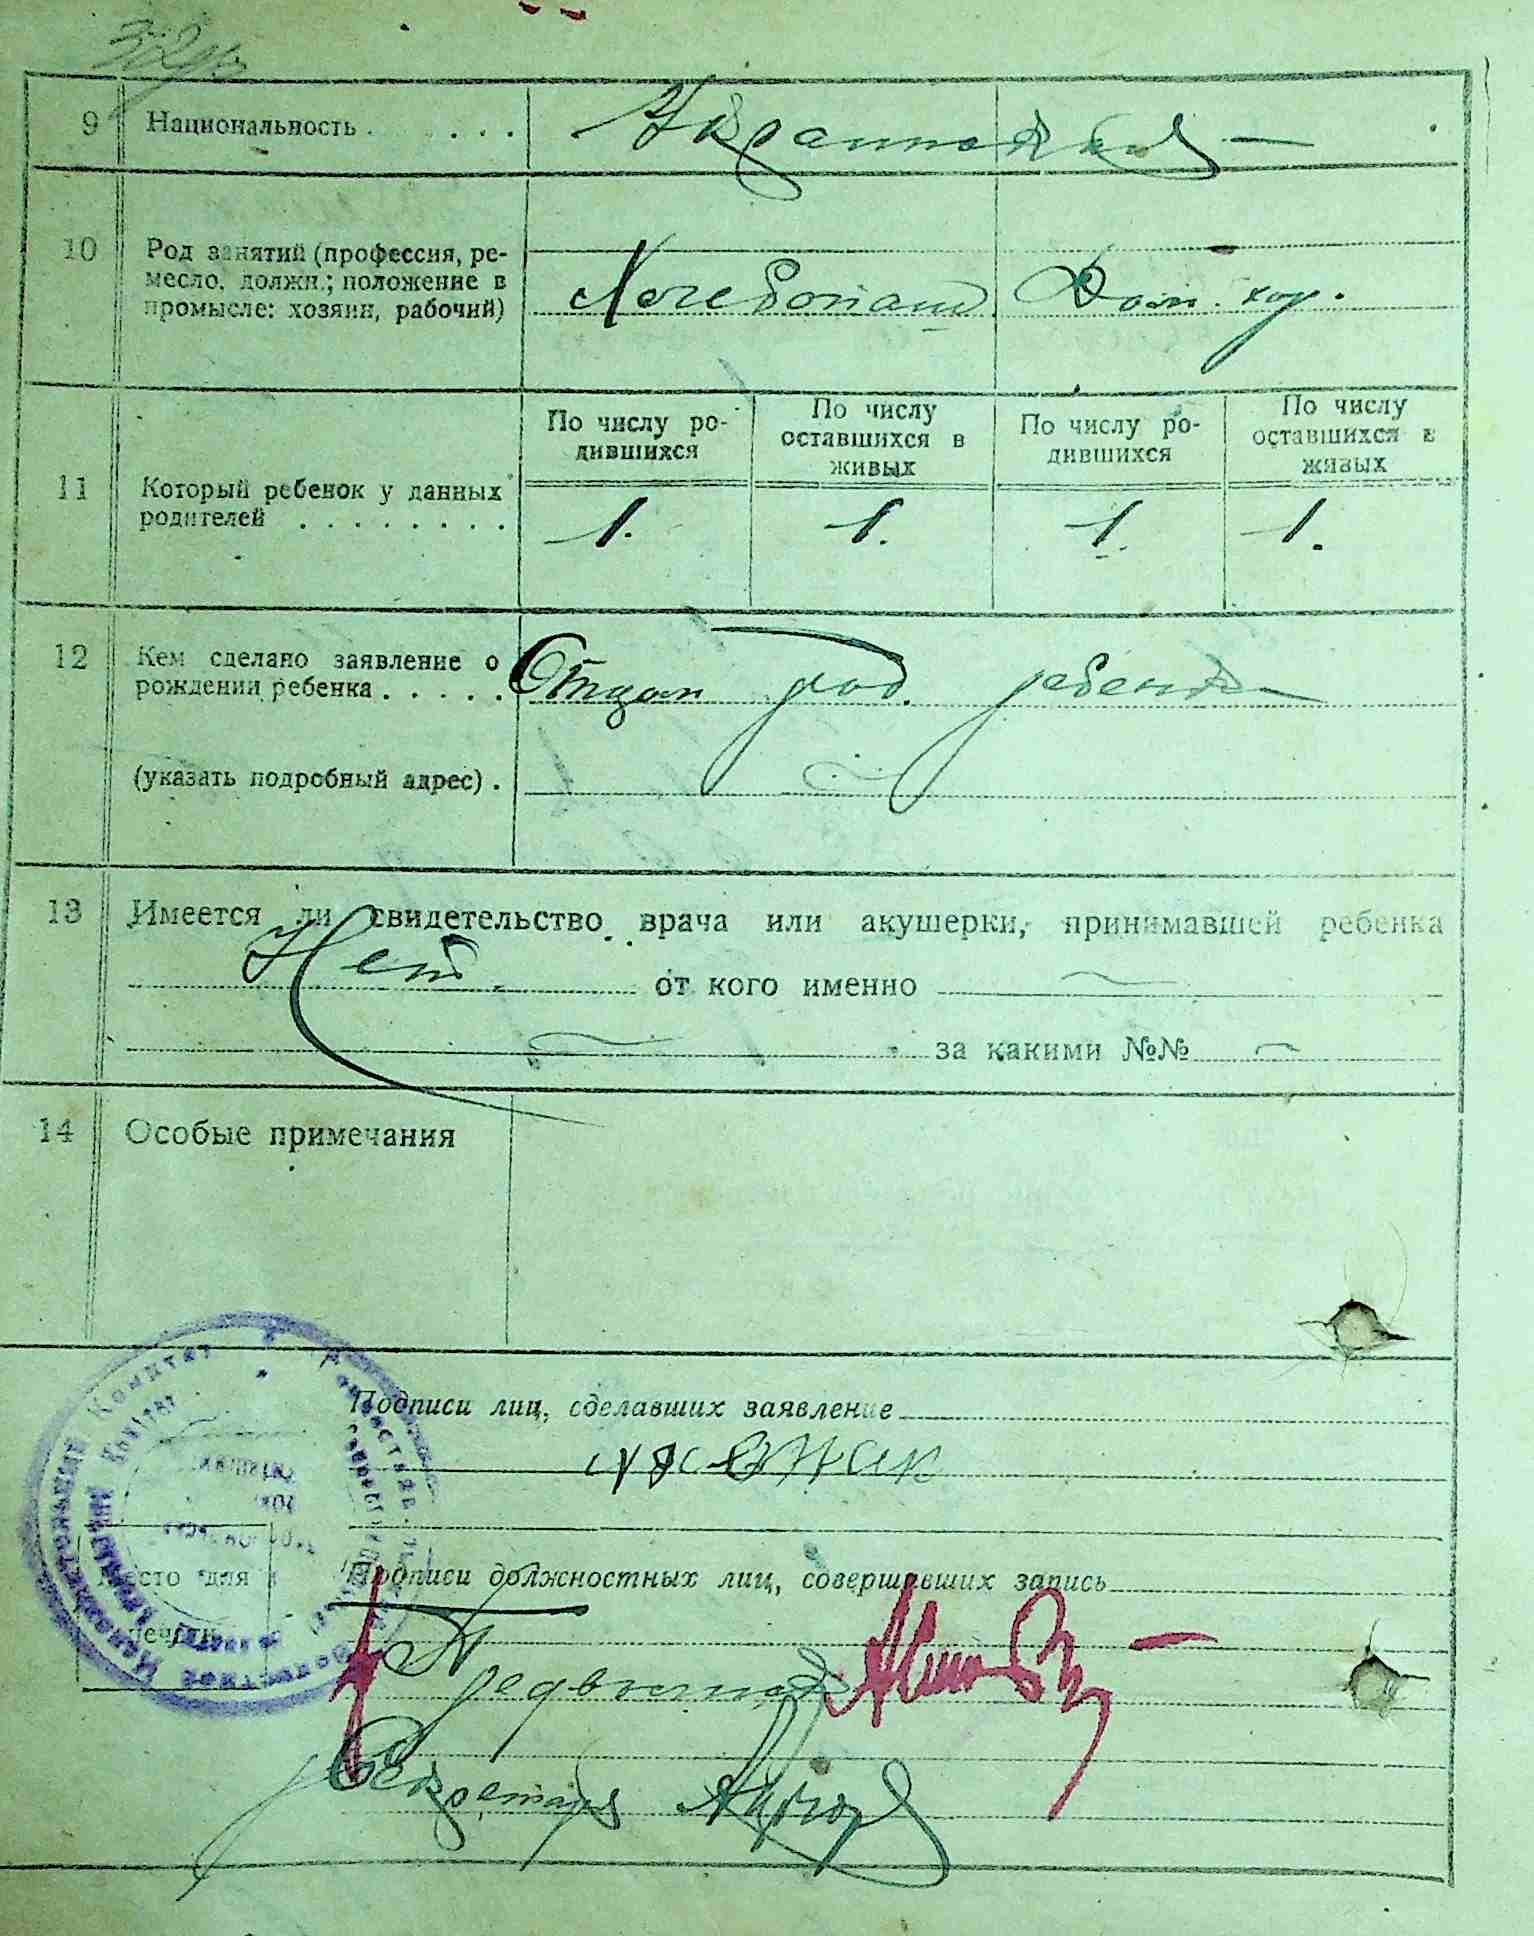 9 Национальность . . . . Украинская —
10 Род занятий (профессия, ре-
месло, должн.; положение в
промысле: хозяин, рабочий)
Хлебопаш. Дом. хоз.
По числу ро-
дившихся
По числу
оставшихся в
живых
По числу ро-
дившихся
По числу
оставшихся в
живых
11 Который ребенок у данных
родителей . . . . . . . .
1. 1. 1. 1.
12 Кем сделано заявление о
рождении ребенка . . . . .
Отцом род. ребенка
(указать подробный адрес) .
13 Имеется ли свидетельство врача или акушерки, принимавшей ребенка
Нет. от кого именно
за какими №№
14 Особые примечания
Подписи лиц, сделавших заявление
Место для
печати
Подписи должностных лиц, совершавших запись
Секретарь